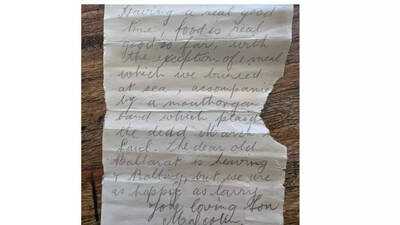 Having a real good
time, food is real
good so far, with
the exception of meal
which we buried
at sea, acompanie
by a mouthorgan
band which plaid
the dead March
Saul. The dear old
Ballarat is heaving
& Rolling, but we are
as happy as larry
Your loving Son
Malcolm